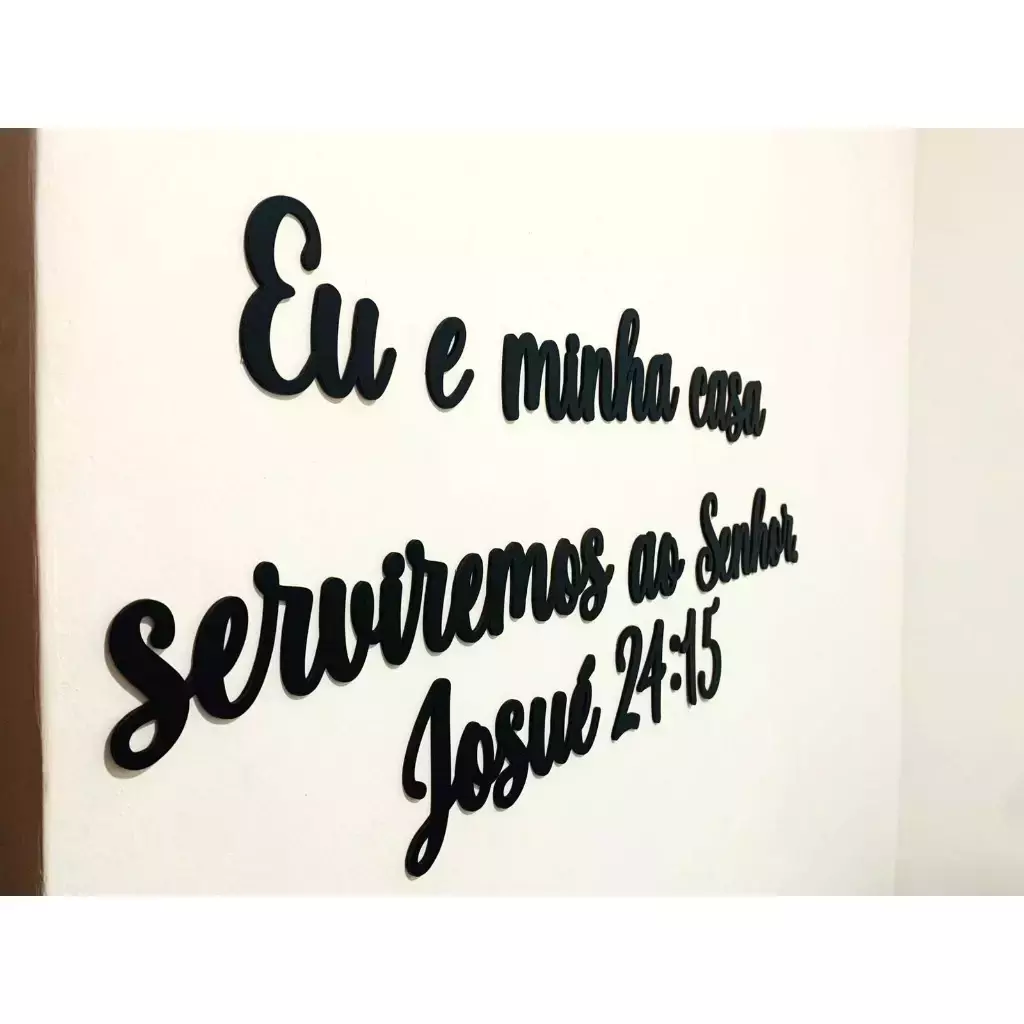 Eu e minha casa
serviremos ao Senhor.
Josué 24:15